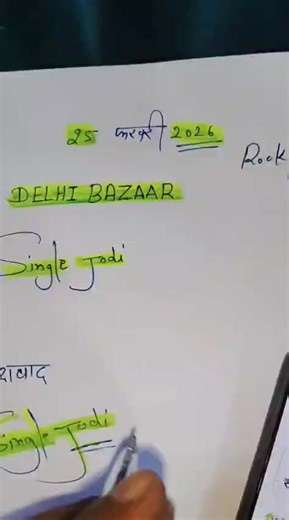 25 फरवरी 2026
Rock
DELHI BAZAAR
Single Jodi
Single Jodi